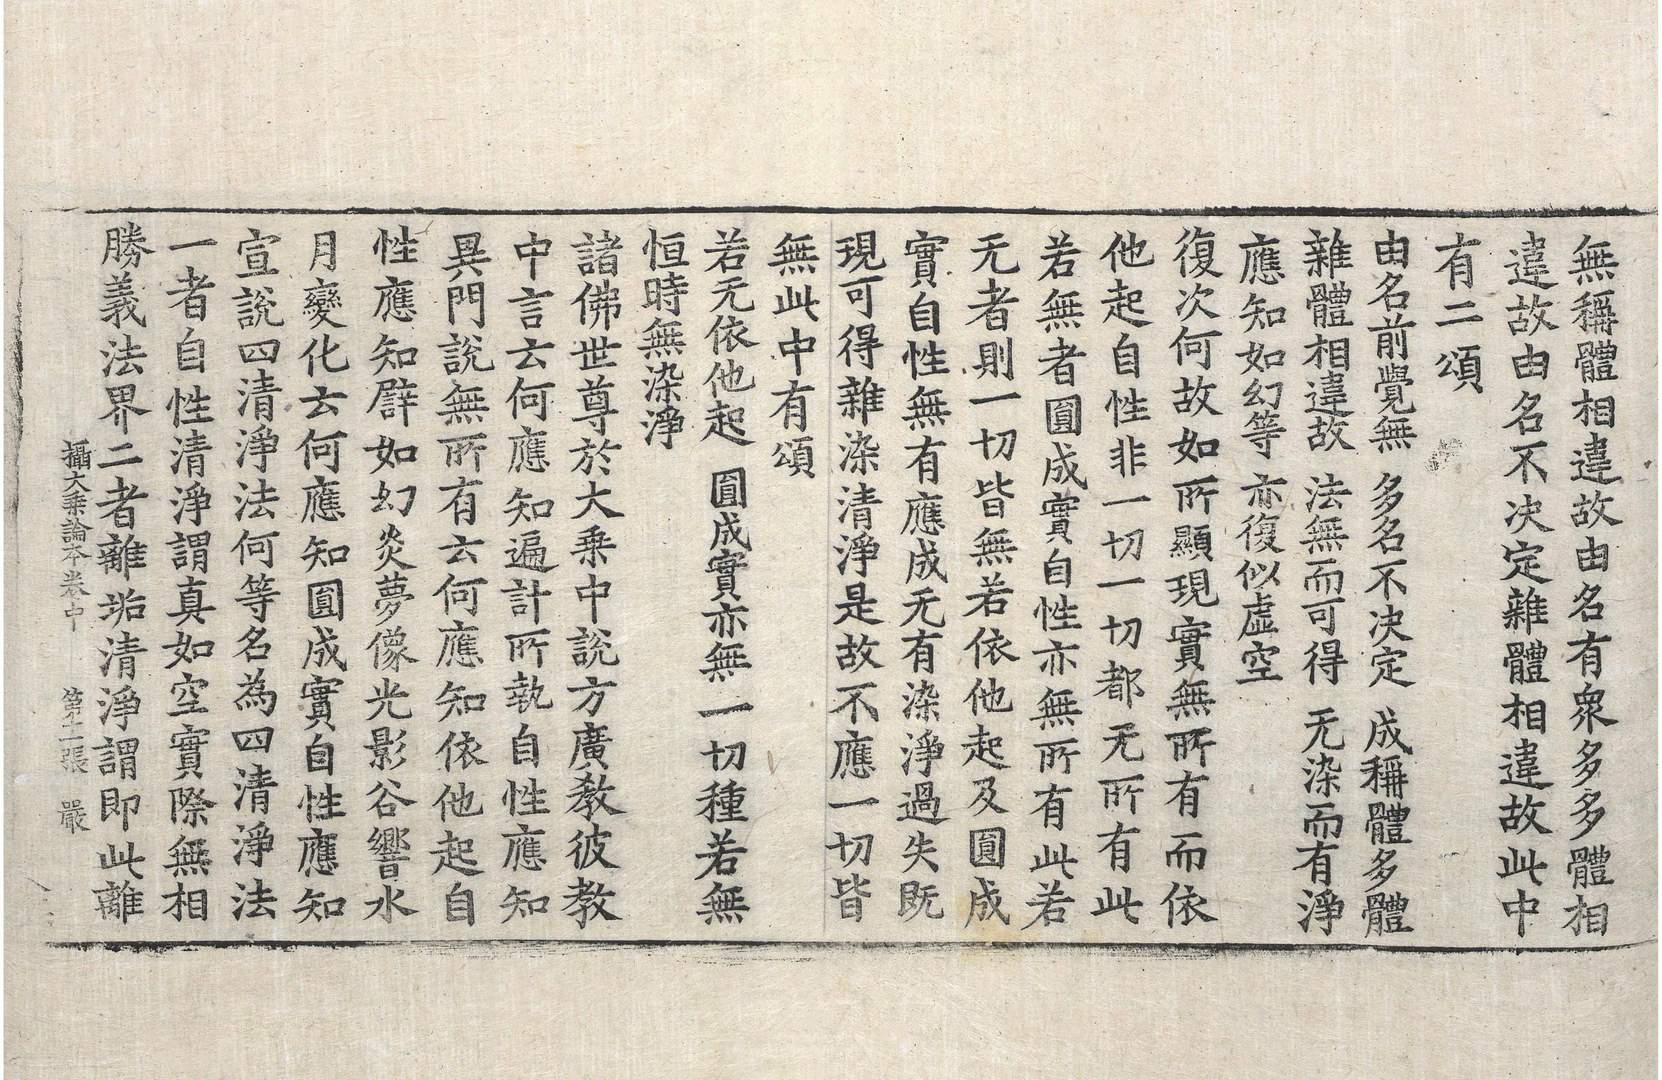 無稱體相違故由名有衆多多體相
違故由名不决定雜體相違故此中
有二頌
由名前覺無　多名不决定　成稱體多體
雜體相違故　法無而可得　无染而有淨
應知如幻等　亦復似虛空
復次何故如所顯現實無所有而依
他起自性非一切一切都无所有此
若無者圓成實自性亦無所有此若
无者則一切皆無若依他起及圓成
實自性無有應成无有染淨過失既
現可得雜染清淨是故不應一切皆
無此中有頌
若无依他起　圓成實亦無　一切種若無
恒時無染淨
諸佛世尊於大乘中說方廣教彼教
中言云何應知遍計所執自性應知
異門說無所有云何應知依他起自
性應知譬如幻炎夢像光影谷響水
月變化云何應知圓成實自性應知
宣說四清淨法何等名為四清淨法
一者自性清淨謂真如空實際無相
勝義法界二者離垢清淨謂即此離
攝大乘論本卷中　第十二張　嚴